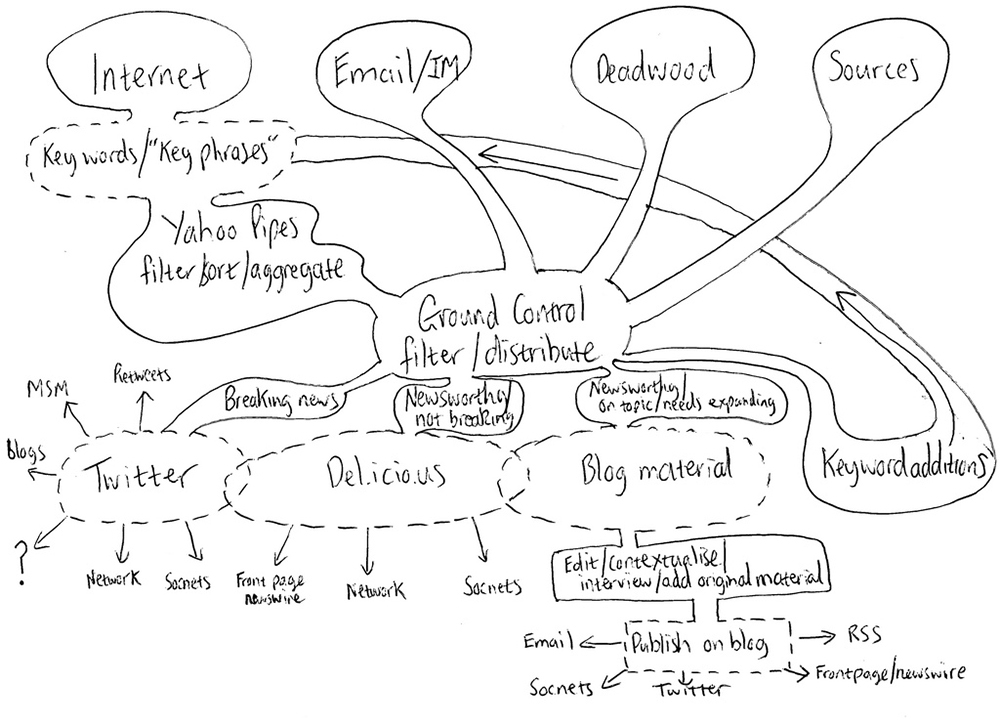 Internet
Email/IM
Deadwood
Sources
Key words/"Key phrases"
Yahoo Pipes
filter/sort/aggregate
Ground Control
filter/distribute
MSM
Retweets
Breaking news
Newsworthy
not breaking
Newsworthy/
on topic/needs expanding
Blogs
Twitter
Del.icio.us
Blog material
Keyword additions
?
Network
Socnets
Front page
newswire
Network
Socnets
Edit/contextualise/
interview/add original material
Email
Publish on blog
RSS
Socnets
Twitter
Frontpage/newswire